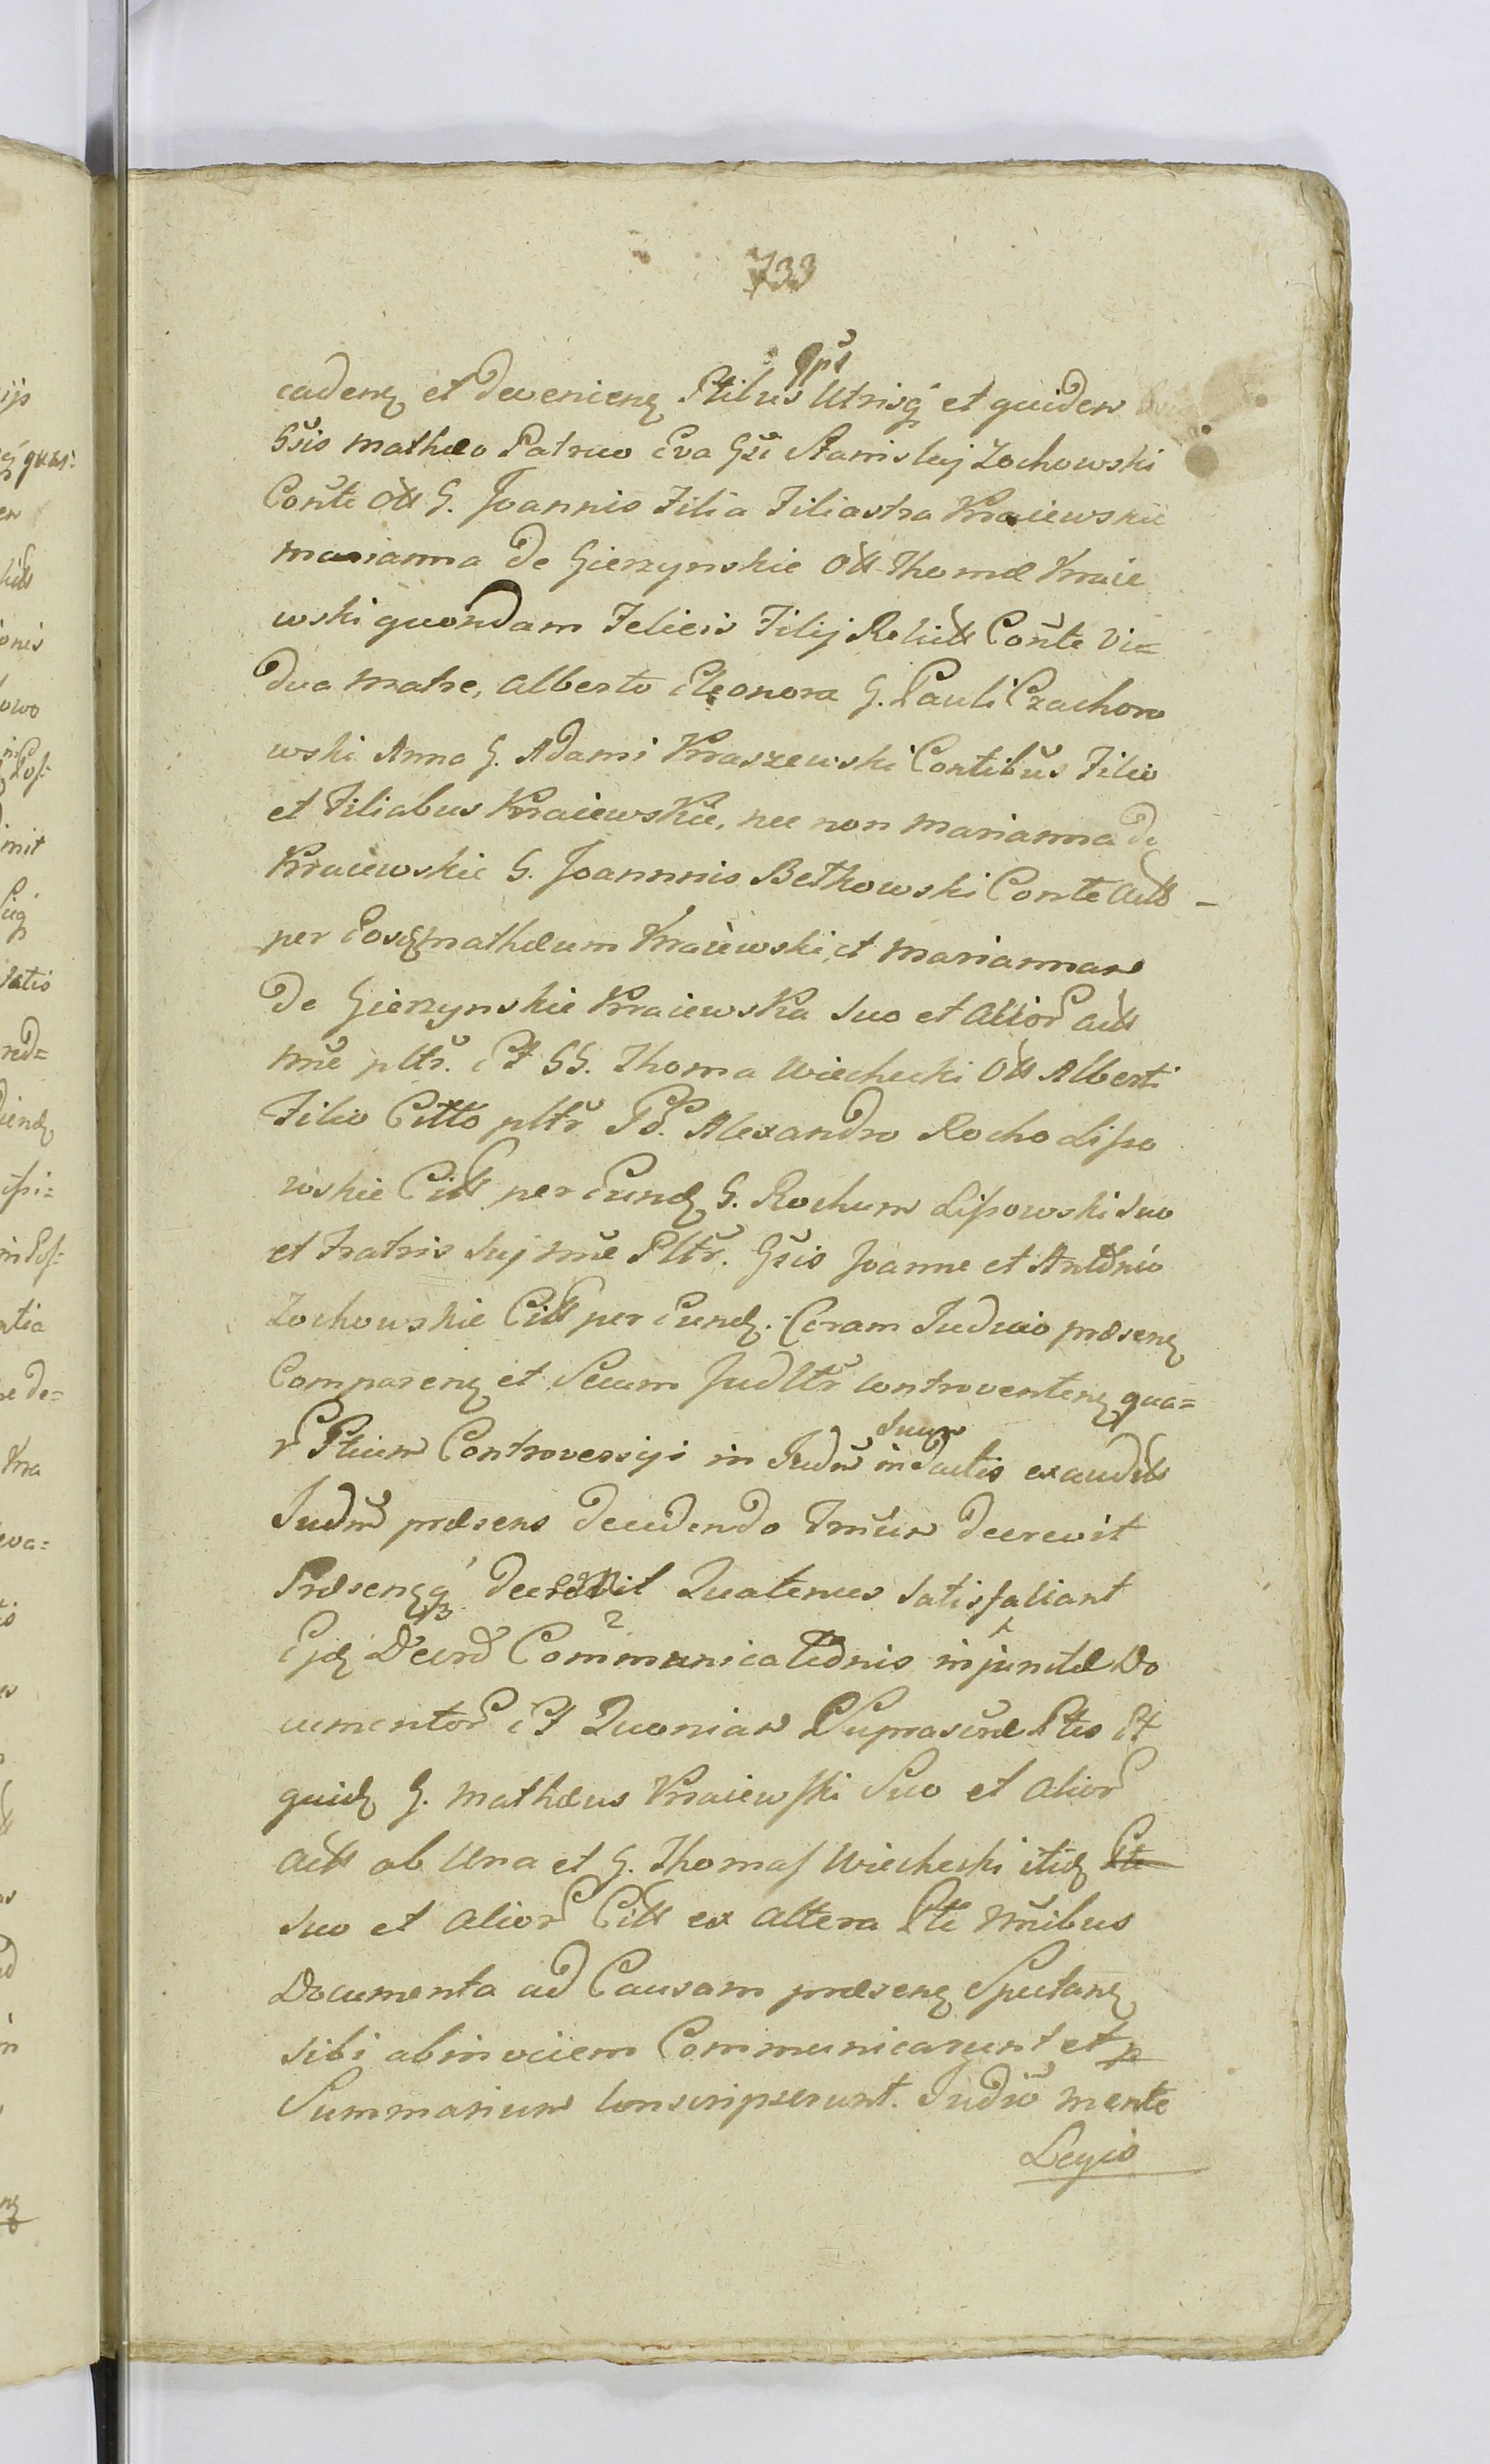 733
cadenę et devenienę Ptibus Utrisq́ et quidem
Gsis Mathæo Patruo Eva Gsi Stanislaj Zochowski
Conte Olt G. Joannis Filia Filiastra Kraiewskie
Marianna de Gierzynskie Olt Thomæ Kraie
wski quondam Felicis Filij Relict Conte Vi=
dua Matre, Alberto Eleonora G. Pauli Czachoro
wski Anna G. Adami Kraszewski Contibus Filio
et Filiabus Kraiewskie, nec non Marianna de
Kraiewskie G. Joannnis Betkowski Conte Actt
per Eosdę Mathæum Kraiewski, et Mariannam
de Gierzynskie Kraiewska suo et Alior Actt
nne pltr. Et GG. Thoma Wiechecki Olt Alberti
Filio Citto pltr Gd. Alexandro Rocho Lipo
wskie Citt per Eundę G. Rochum Lipowski suo
et Fratris Suj nne Pltr. Gsis Joanne et Antonio
Zochowskie Citt per Eundę. Coram Judicio præsenę
Comparenę et Secum Judltr controvertenę qua=
r Ptium Controversijs in Judm suum inductis exaudit
Judm præsens decidendo Imum decrevit
Præsenęq́ decrevit Quatenus satisfaciant
Ejdę Decro Communicationis injunctæ Do
cumentor Et Quoniam Suprascræ Ptes Et
quidę G. Mathæus Kraiewski Suo et Alior
Actt ab Una et G. Thomas Wiechecki itidę Pte
suo et Alior Citt ex altera Pte Nnibus
Documenta ad Causam præsenę Spectanę
sibi abinvicem Communicarunt et
Summarium conscripserunt. Judm mente
Legis